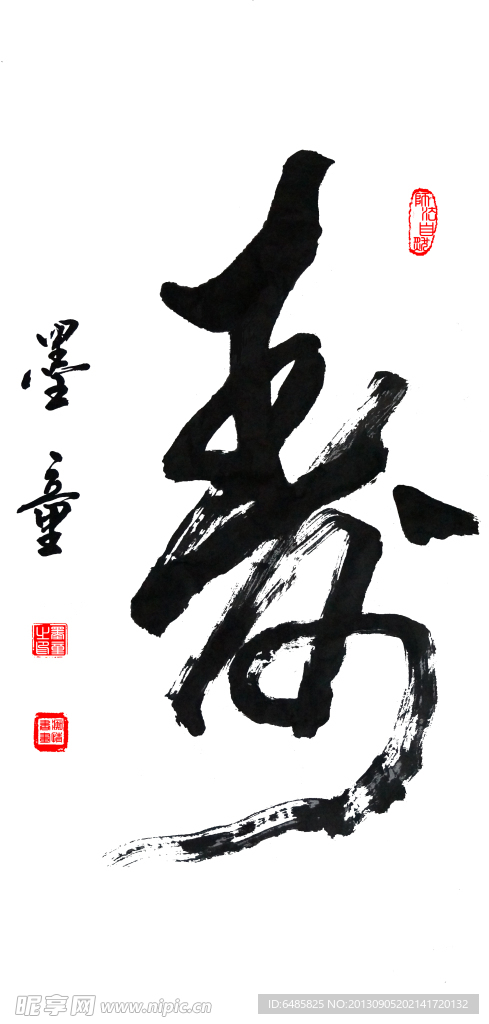 寿
墨童
师法自然
墨童之印
昵享网 www.nipic.cn
ID:6485825 NO:20130905202141720132